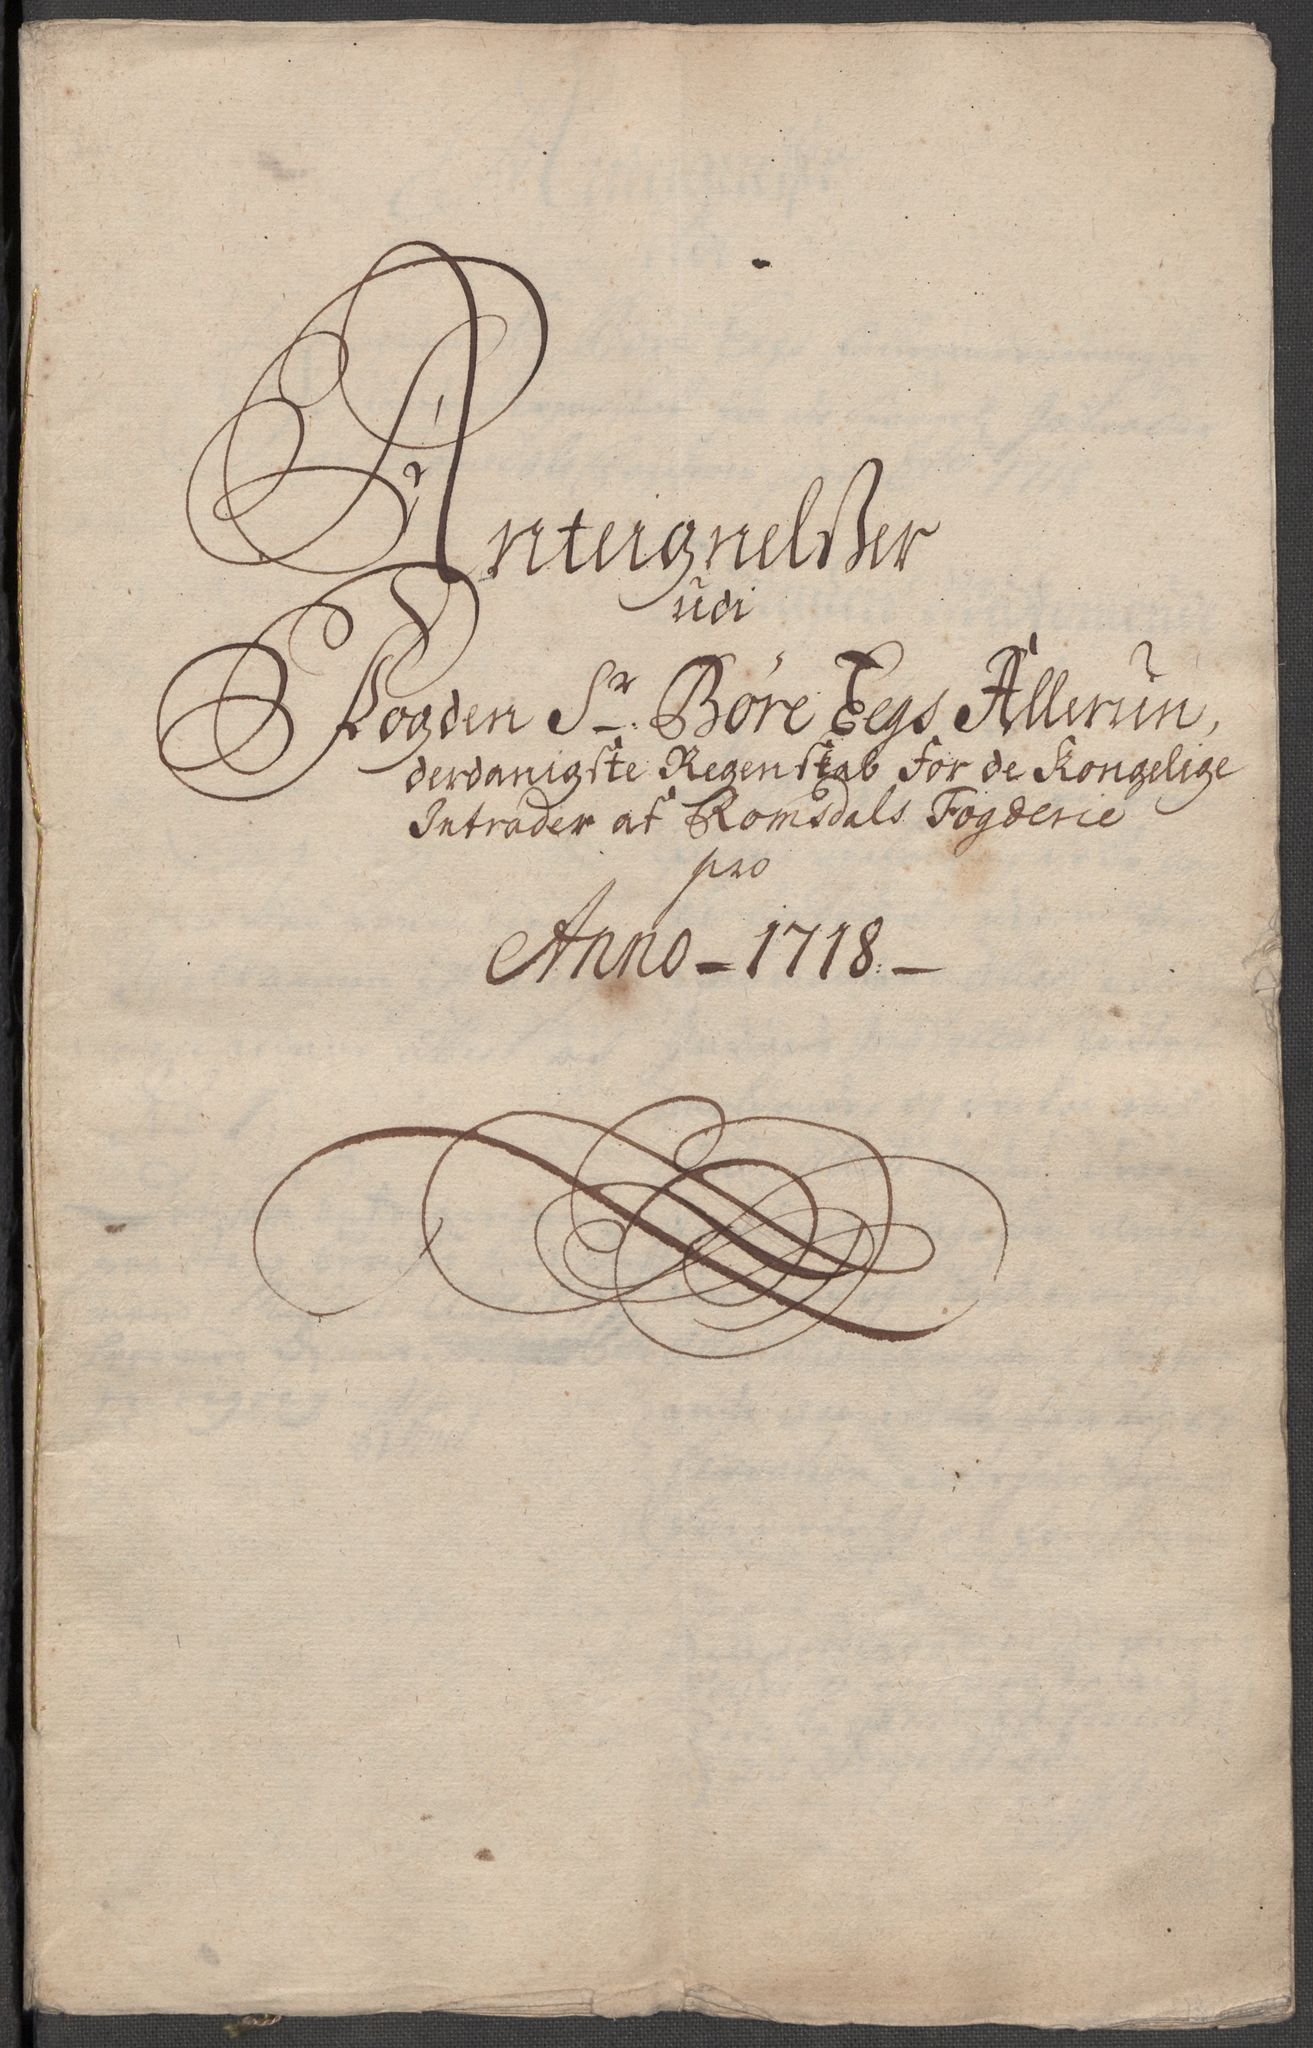 Anteignelßer
udi
Fogden Sr. Børe Eegs Allerun,
derdanigste Regenskab for de Kongelige
Intrader af Romsdals Fogderie
pro
Anno - 1718. -